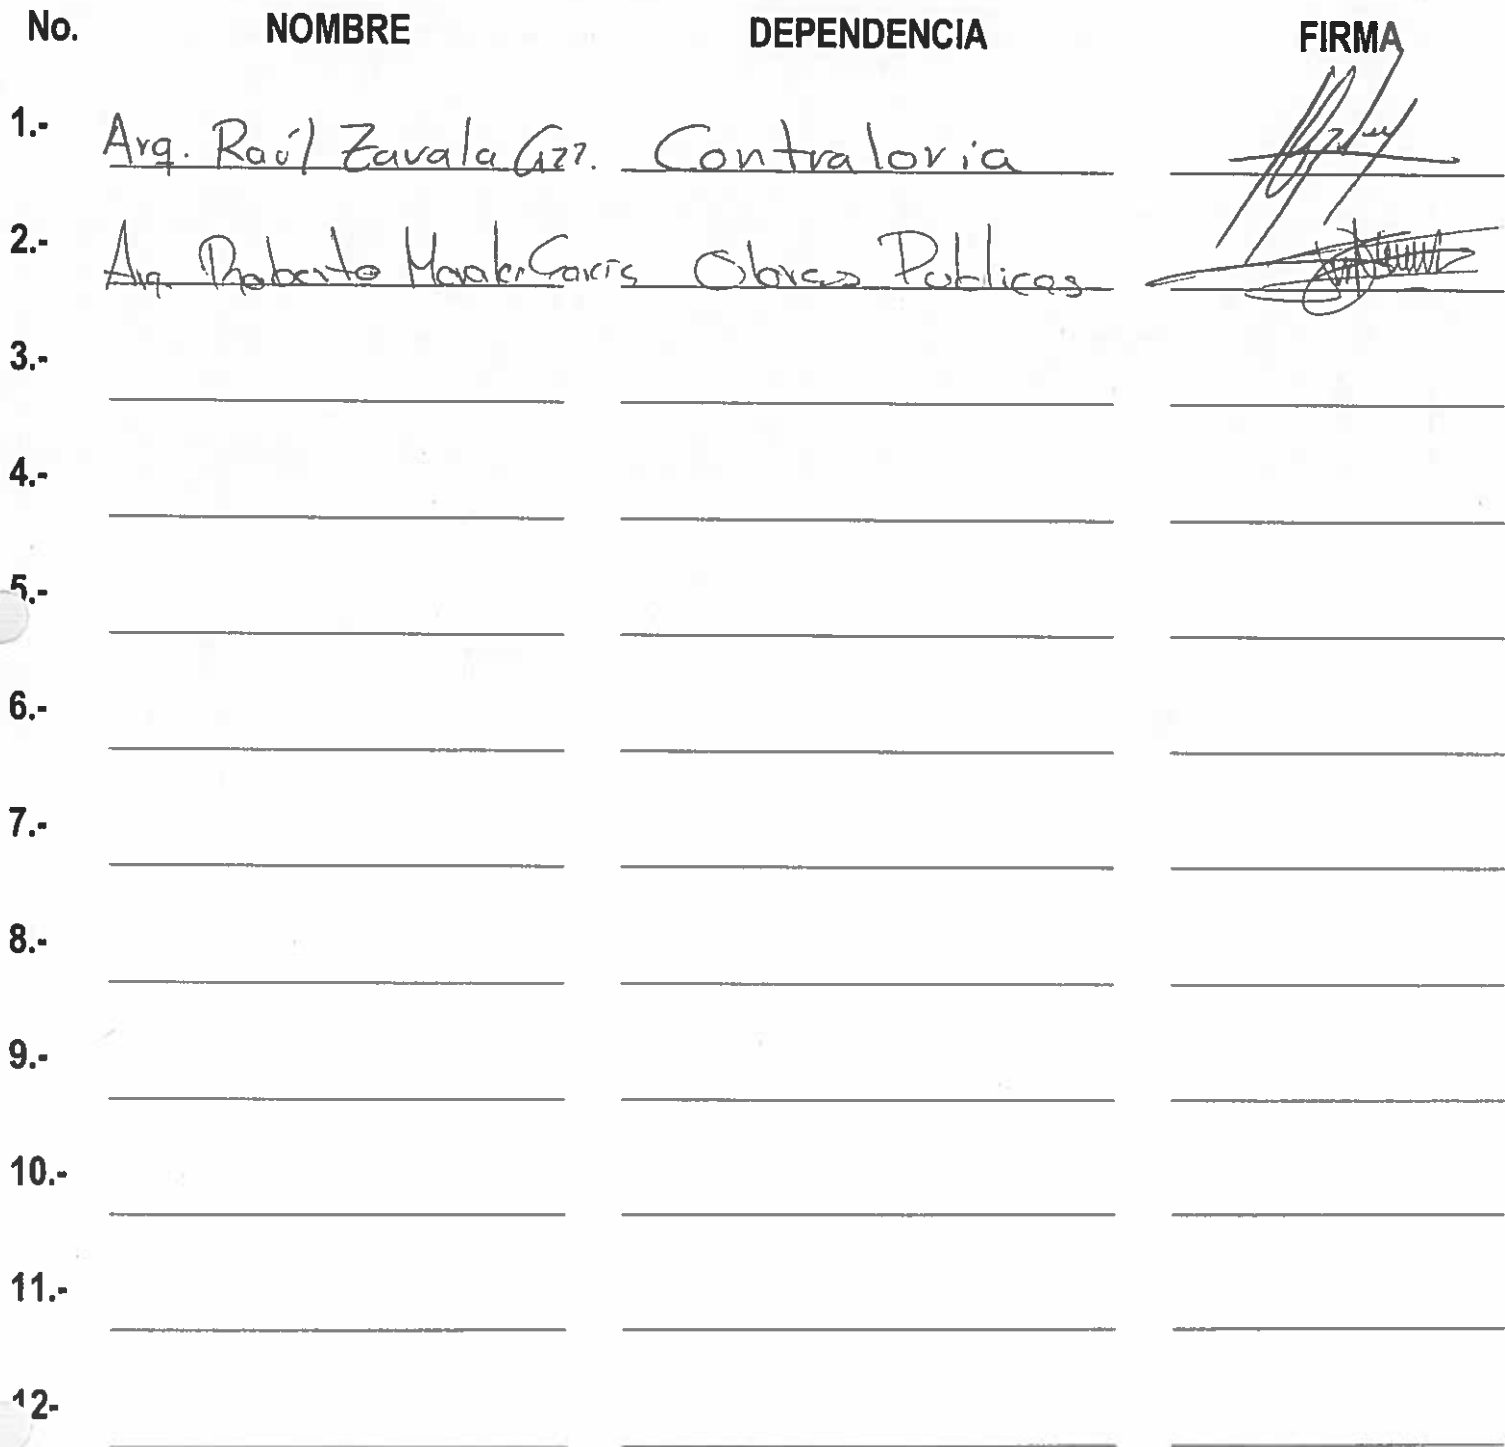 No. NOMBRE DEPENDENCIA FIRMA
1.- Arq. Raúl Zavala Gzz. Contraloria
2.- Arq. Roberto Morales García Obras Publicas
3.-
4.-
5.-
6.-
7.-
8.-
9.-
10.-
11.-
12-